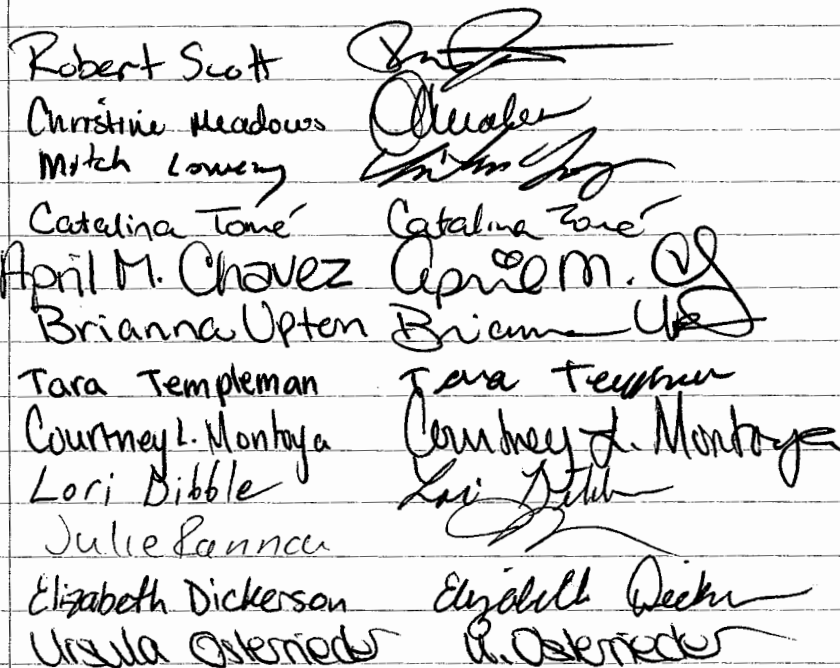 Robert Scott
Christine Meadows
Mitch Lowery
Catalina Tomé Catalina Tomé
April M. Chavez April M.
Brianna Upton Brianna
Tara Templeman Tara
Courtney L. Montoya Courtney L. Montoya
Lori Dibble Lori Dibble
Julie
Elizabeth Dickerson Elizabeth
Ursula Osterrieder U. Osterrieder